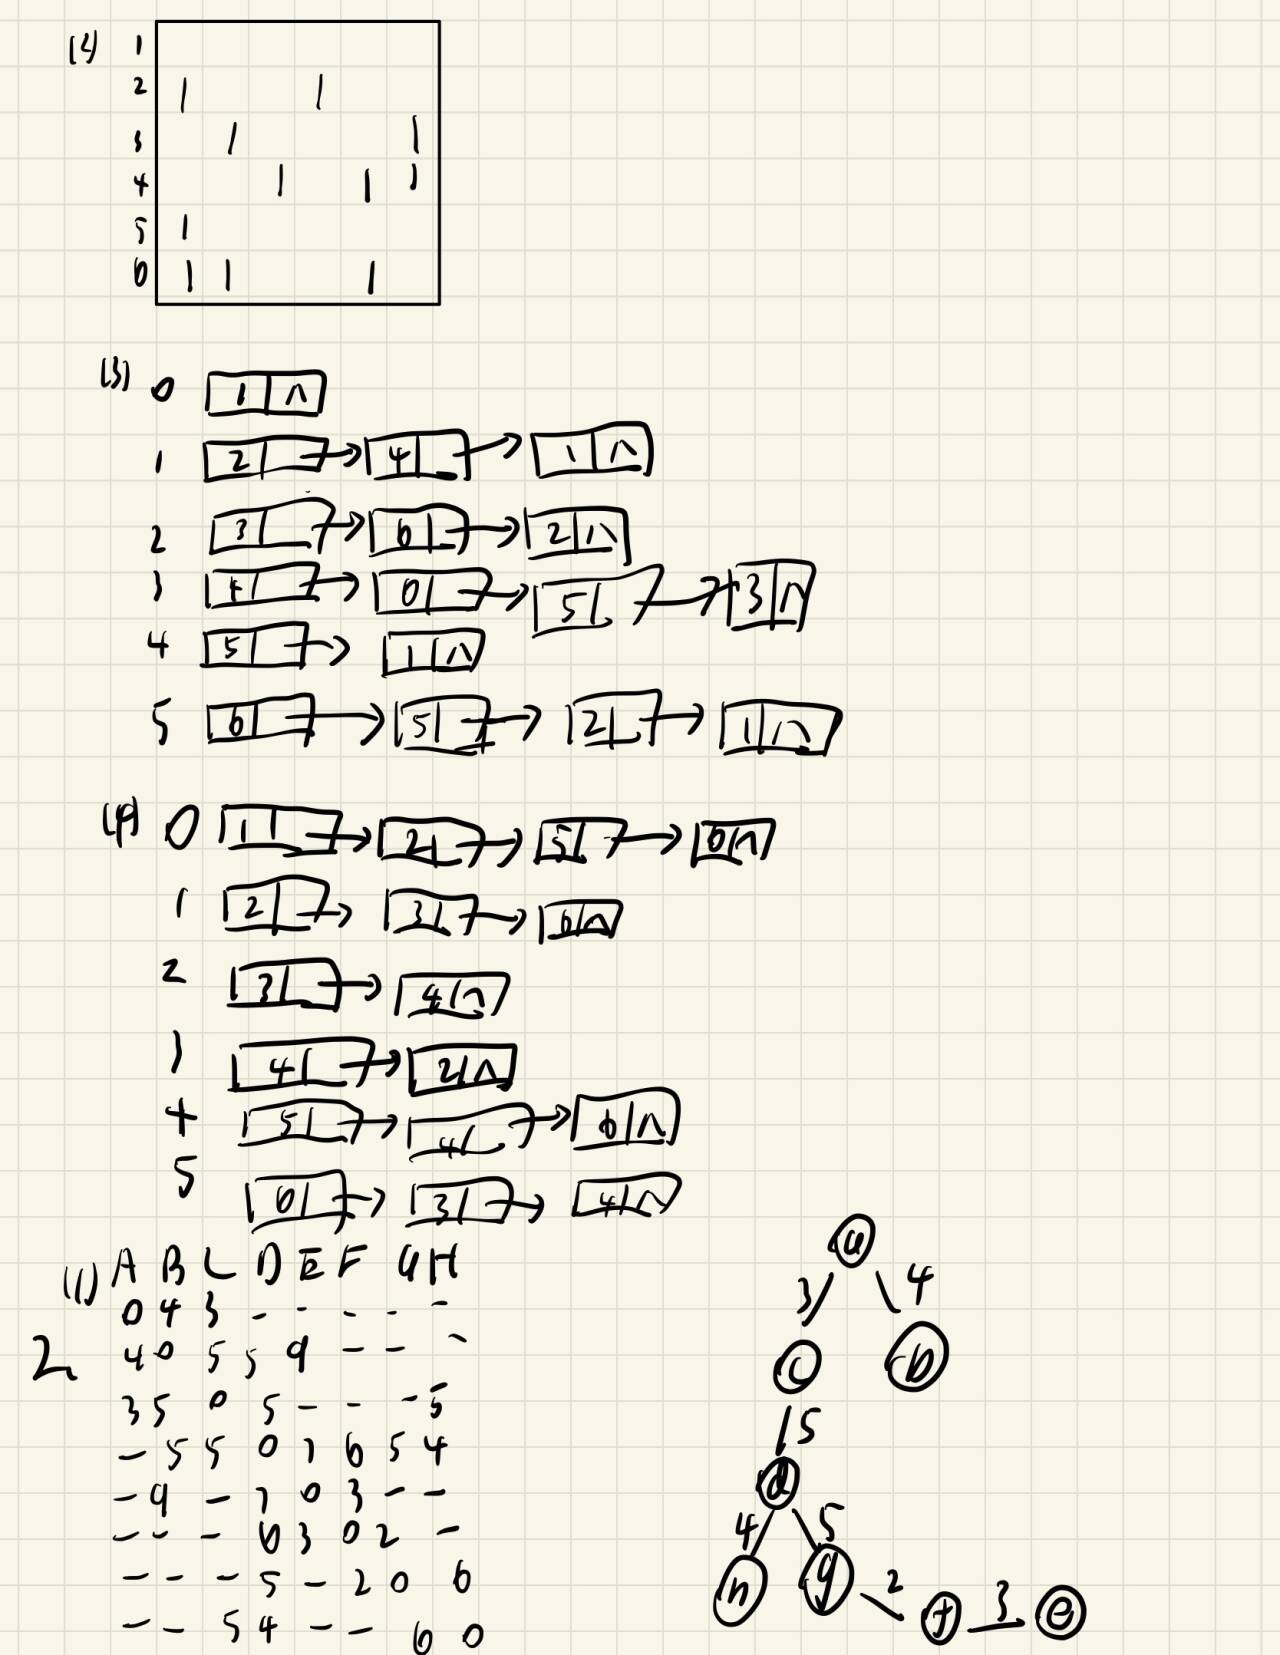 (2) 1
2 1 1
3 1 1
4 1 1 1
5 1
6 1 1 1
(3) 0 1 ∧
1 2 → 4 → 1 ∧
2 3 → 6 → 2 ∧
3 4 → 0 → 5 → 3 ∧
4 5 → 1 ∧
5 6 → 5 → 2 → 1 ∧
(4) 0 1 → 2 → 5 → 0 ∧
1 2 → 3 → 6 ∧
2 3 → 4 ∧
3 4 → 2 ∧
4 5 → 4 → 6 ∧
5 0 → 3 → 4 ∧
2
(1) A B C D E F G H
0 4 3 - - - - -
4 0 5 5 9 - - -
3 5 0 5 - - - 5
- 5 5 0 7 6 5 4
- 9 - 7 0 3 - -
- - - 6 3 0 2 -
- - - 5 - 2 0 6
- - 5 4 - - 6 0
a
3 4
c b
5
d
4 5
h g 2 f 3 e